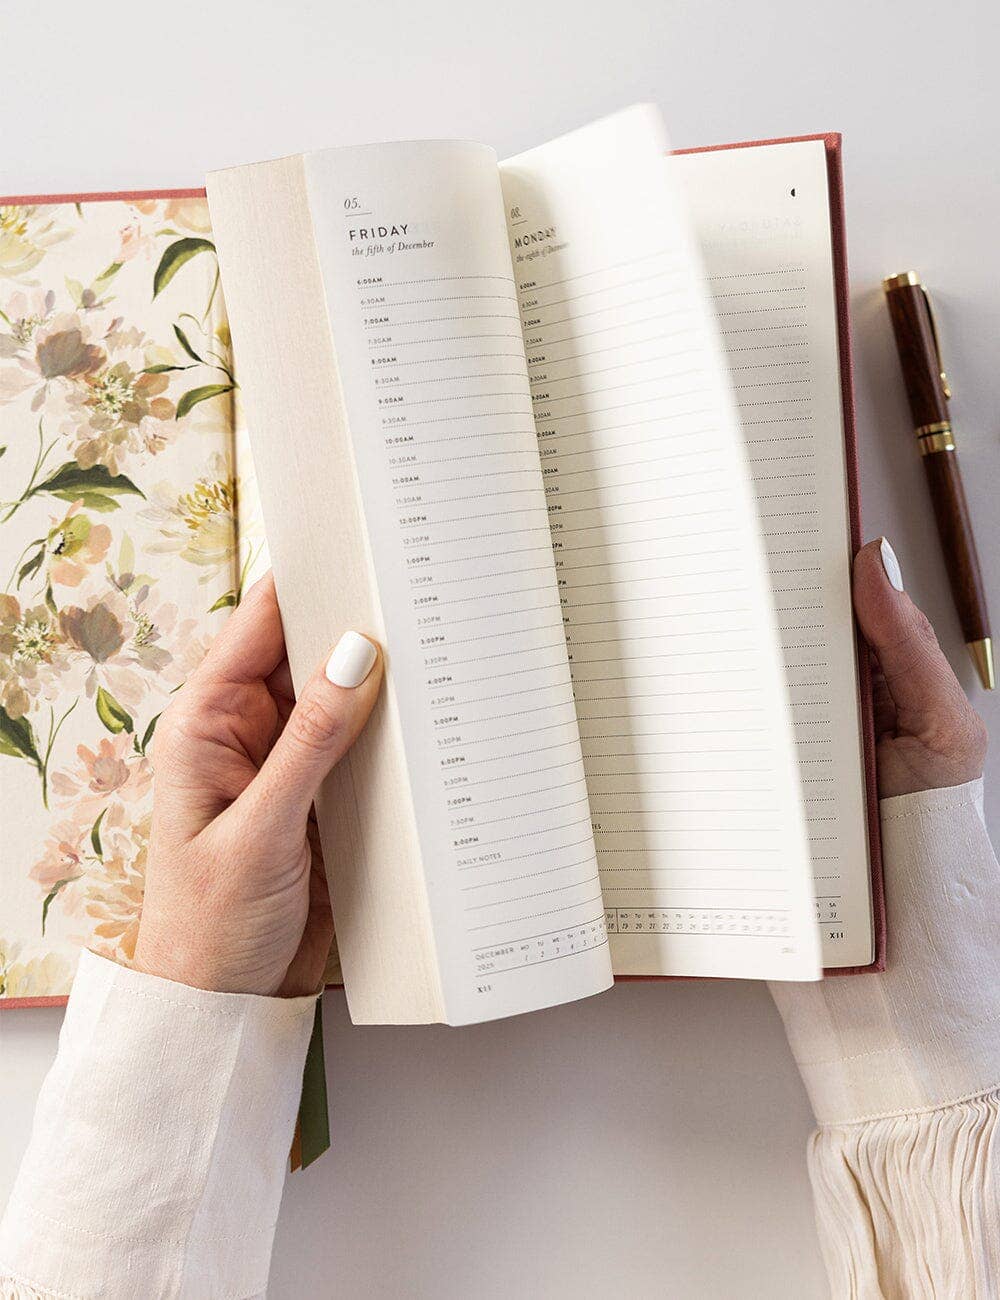 05.
FRIDAY
the fifth of December
6:00AM
6:30AM
7:00AM
7:30AM
8:00AM
8:30AM
9:00AM
9:30AM
10:00AM
10:30AM
11:00AM
11:30AM
12:00PM
12:30PM
1:00PM
1:30PM
2:00PM
2:30PM
3:00PM
3:30PM
4:00PM
4:30PM
5:00PM
5:30PM
6:00PM
6:30PM
7:00PM
7:30PM
8:00PM
DAILY NOTES
DECEMBER MO TU WE TH FR SA
2025 1 2 3 4 5 6
XII
08.
MONDAY
the eighth of December
6:00AM
6:30AM
7:00AM
7:30AM
8:00AM
8:30AM
9:00AM
9:30AM
10:00AM
10:30AM
MO TU WE TH FR SA
18 19 20 21 22
SA
30 31
XII